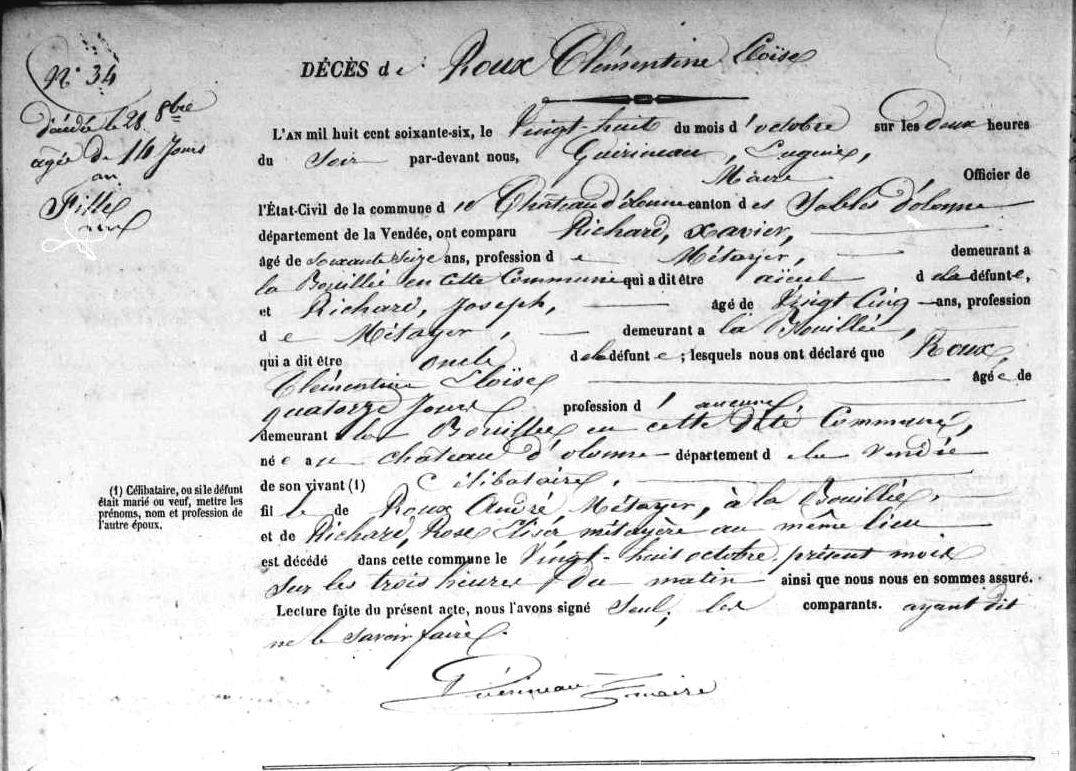 N° 34
DÉCÈS de Roux Clémentine Eloïse
décédée le 28 8bre
agée de 14 Jours
Fille
L'AN mil huit cent soixante-six, le Vingt-huit du mois d'octobre sur les deux heures
du Soir par-devant nous, Guérineau, Eugène,
Maire Officier de
l'État-Civil de la commune de Château d'olonne canton des Sables d'olonne
département de la Vendée, ont comparu Richard, Xavier,
âgé de Soixante Seize ans, profession de Métayer, demeurant a
la Bouillié en cette Commune qui a dit être aïeul de la défunte,
et Richard, Joseph, âgé de Vingt Cinq ans, profession
de Métayer, demeurant a la Bouillée,
qui a dit être oncle de la défunte ; lesquels nous ont déclaré que Roux,
Clémentine Eloïse âgée de
quatorze Jours profession d' aucune
demeurant a la Bouillée en cette dite Commune,
née au château d'olonne département de la Vendée
de son vivant (1) Célibataire,
fille de Roux André Métayer, à la Bouillié,
et de Richard, Rose Elisa, métayère au même lieu
est décédé dans cette commune le Vingt-huit octobre présent mois
sur les trois heures du matin ainsi que nous nous en sommes assuré.
Lecture faite du présent acte, nous l'avons signé Seul, les comparants. ayant dit
ne le savoir faire.
Guérineau maire
(1) Célibataire, ou si le défunt
était marié ou veuf, mettre les
prénoms, nom et profession de
l'autre époux.